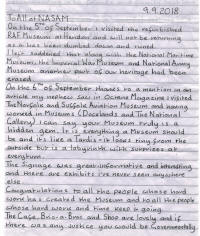 9.9.2018
To All at NASAM
On the 5th of September I visited the refurbished
RAF Museum at Hendon and will not be returning
as it has been dumbed down and ruined.
I feel saddened that along with the National Maritime
Museum, the Imperial War Museum and National Army
Museum another part of our heritage had been
erased.
On the 6th of September thanks to a mention in an
article my in Octane Magazine I visited
The Norfolk and Suffolk Aviation Museum and having
worked in Museums (Docklands and The National
Gallery) I can say your Museum truly is a
hidden gem. It is everything a Museum should
be and it's like a Tardis - it looks tiny from the
outside but is a labyrinth with surprises at
every turn.
The Signage was great informative and interesting
and there are exhibits I've never seen anywhere
else
Congratulations to all the people whose hard
work has created the Museum and to all the people
whose hard work and time keep it going.
The Cafe, Bric-a-Brac and Shop are lovely and if
there was any justice you would be Governmentally